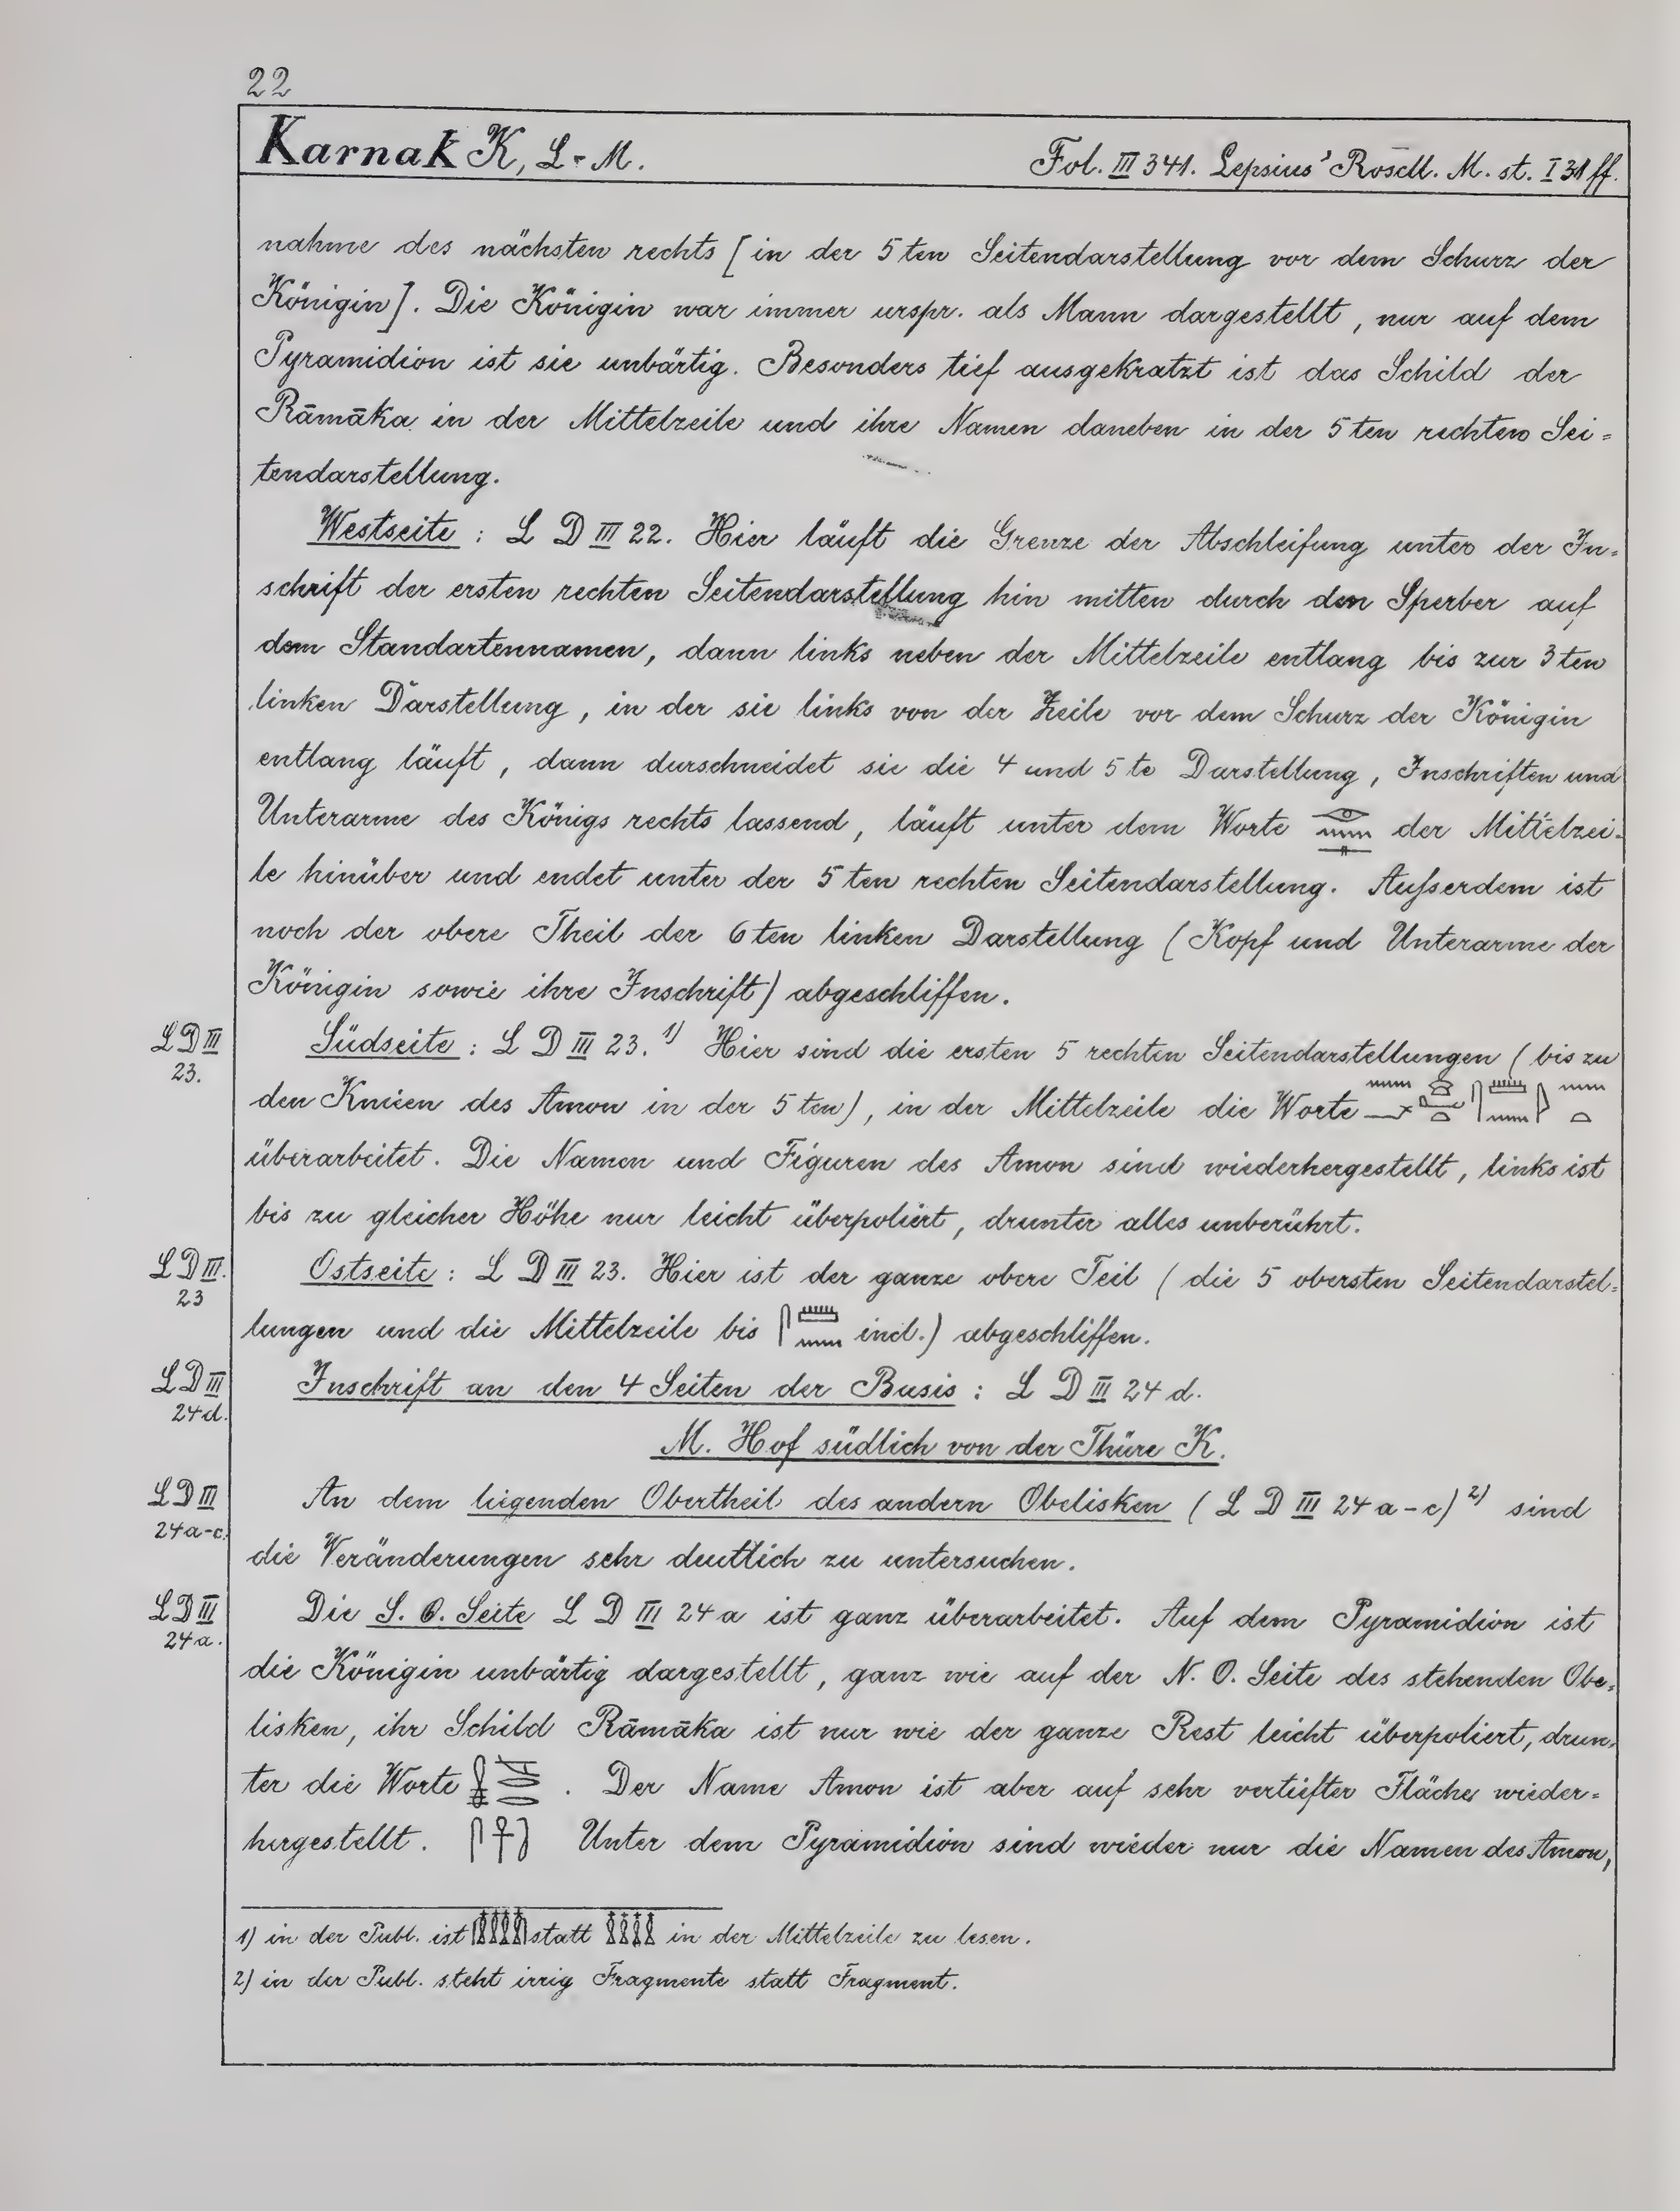 22
Karnak K, L-M.
Fol. III 341. Lepsius' Rosell. M. st. I 31 ff.
nahme des nächsten rechts [in der 5ten Seitendarstellung vor dem Schurz der
Königin]. Die Königin war immer urspr. als Mann dargestellt, nur auf dem
Pyramidion ist sie unbärtig. Besonders tief ausgekratzt ist das Schild der
Rāmāka in der Mittelzeile und ihre Namen daneben in der 5ten rechten Sei=
tendarstellung.
Westseite: L D III 22. Hier läuft die Grenze der Abschleifung unter der In=
schrift der ersten rechten Seitendarstellung hin mitten durch den Sperber auf
dem Standartennamen, dann links neben der Mittelzeile entlang bis zur 3ten
linken Darstellung, in der sie links von der Zeile vor dem Schurz der Königin
entlang läuft, dann durschneidet sie die 4 und 5te Darstellung, Inschriften und
Unterarme des Königs rechts lassend, läuft unter dem Worte der Mittelzei=
le hinüber und endet unter der 5ten rechten Seitendarstellung. Außerdem ist
noch der obere Theil der 6ten linken Darstellung (Kopf und Unterarme der
Königin sowie ihre Inschrift) abgeschliffen.
LD III
23.
Südseite: L D III 23. 1) Hier sind die ersten 5 rechten Seitendarstellungen (bis zu
den Knieen des Amon in der 5ten), in der Mittelzeile die Worte
überarbeitet. Die Namen und Figuren des Amon sind wiederhergestellt, links ist
bis zu gleicher Höhe nur leicht überpoliert, drunter alles unberührt.
LD III.
23
Ostseite: L D III 23. Hier ist der ganze obere Teil (die 5 obersten Seitendarstel=
lungen und die Mittelzeile bis incl.) abgeschliffen.
LD III
24d.
Inschrift an den 4 Seiten der Basis: L D III 24 d.
M. Hof südlich von der Thüre K.
LD III
24a-c.
An dem liegenden Obertheil des andern Obelisken (L D III 24 a-c) 2) sind
die Veränderungen sehr deutlich zu untersuchen.
LD III
24a.
Die S. O. Seite L D III 24a ist ganz überarbeitet. Auf dem Pyramidion ist
die Königin unbärtig dargestellt, ganz wie auf der N. O. Seite des stehenden Obe=
lisken, ihr Schild Rāmāka ist nur wie der ganze Rest leicht überpoliert, drun=
ter die Worte . Der Name Amon ist aber auf sehr vertiefter Fläche wieder=
hergestellt. Unter dem Pyramidion sind wieder nur die Namen des Amon,
1) in der Publ. ist statt in der Mittelzeile zu lesen.
2) in der Publ. steht irrig Fragmente statt Fragment.